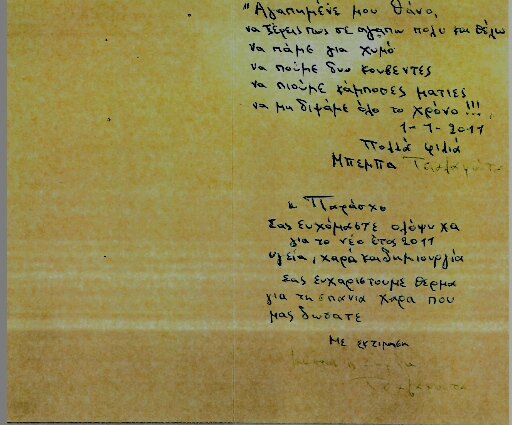 "Αγαπημένε μου Θάνο,
να ξέρεις πως σε αγαπω πολυ και θέλω
να πάμε για χυμό
να πούμε δυο κουβεντες
να πιούμε κάμποσες ματιες
να μη διψάμε όλο το χρόνο!!!,
1-1-2011
Πολλά φιλιά
Μπεμπα
κ Παράσχο
Σας ευχόμαστε ολόψυχα
για το νέο έτος 2011
υγεία, χαρά και δημιουργία
Σας ευχαριστουμε θερμα
για τη σπανια χαρα που
μας δωσατε
Με εκτιμηση